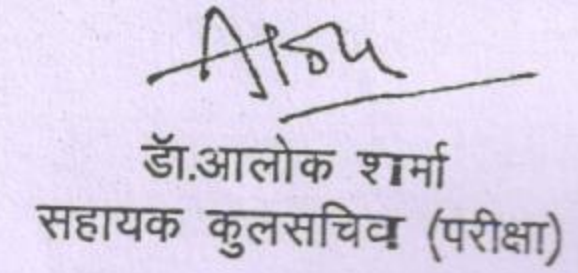 डॉ.आलोक शर्मा
सहायक कुलसचिव (परीक्षा)